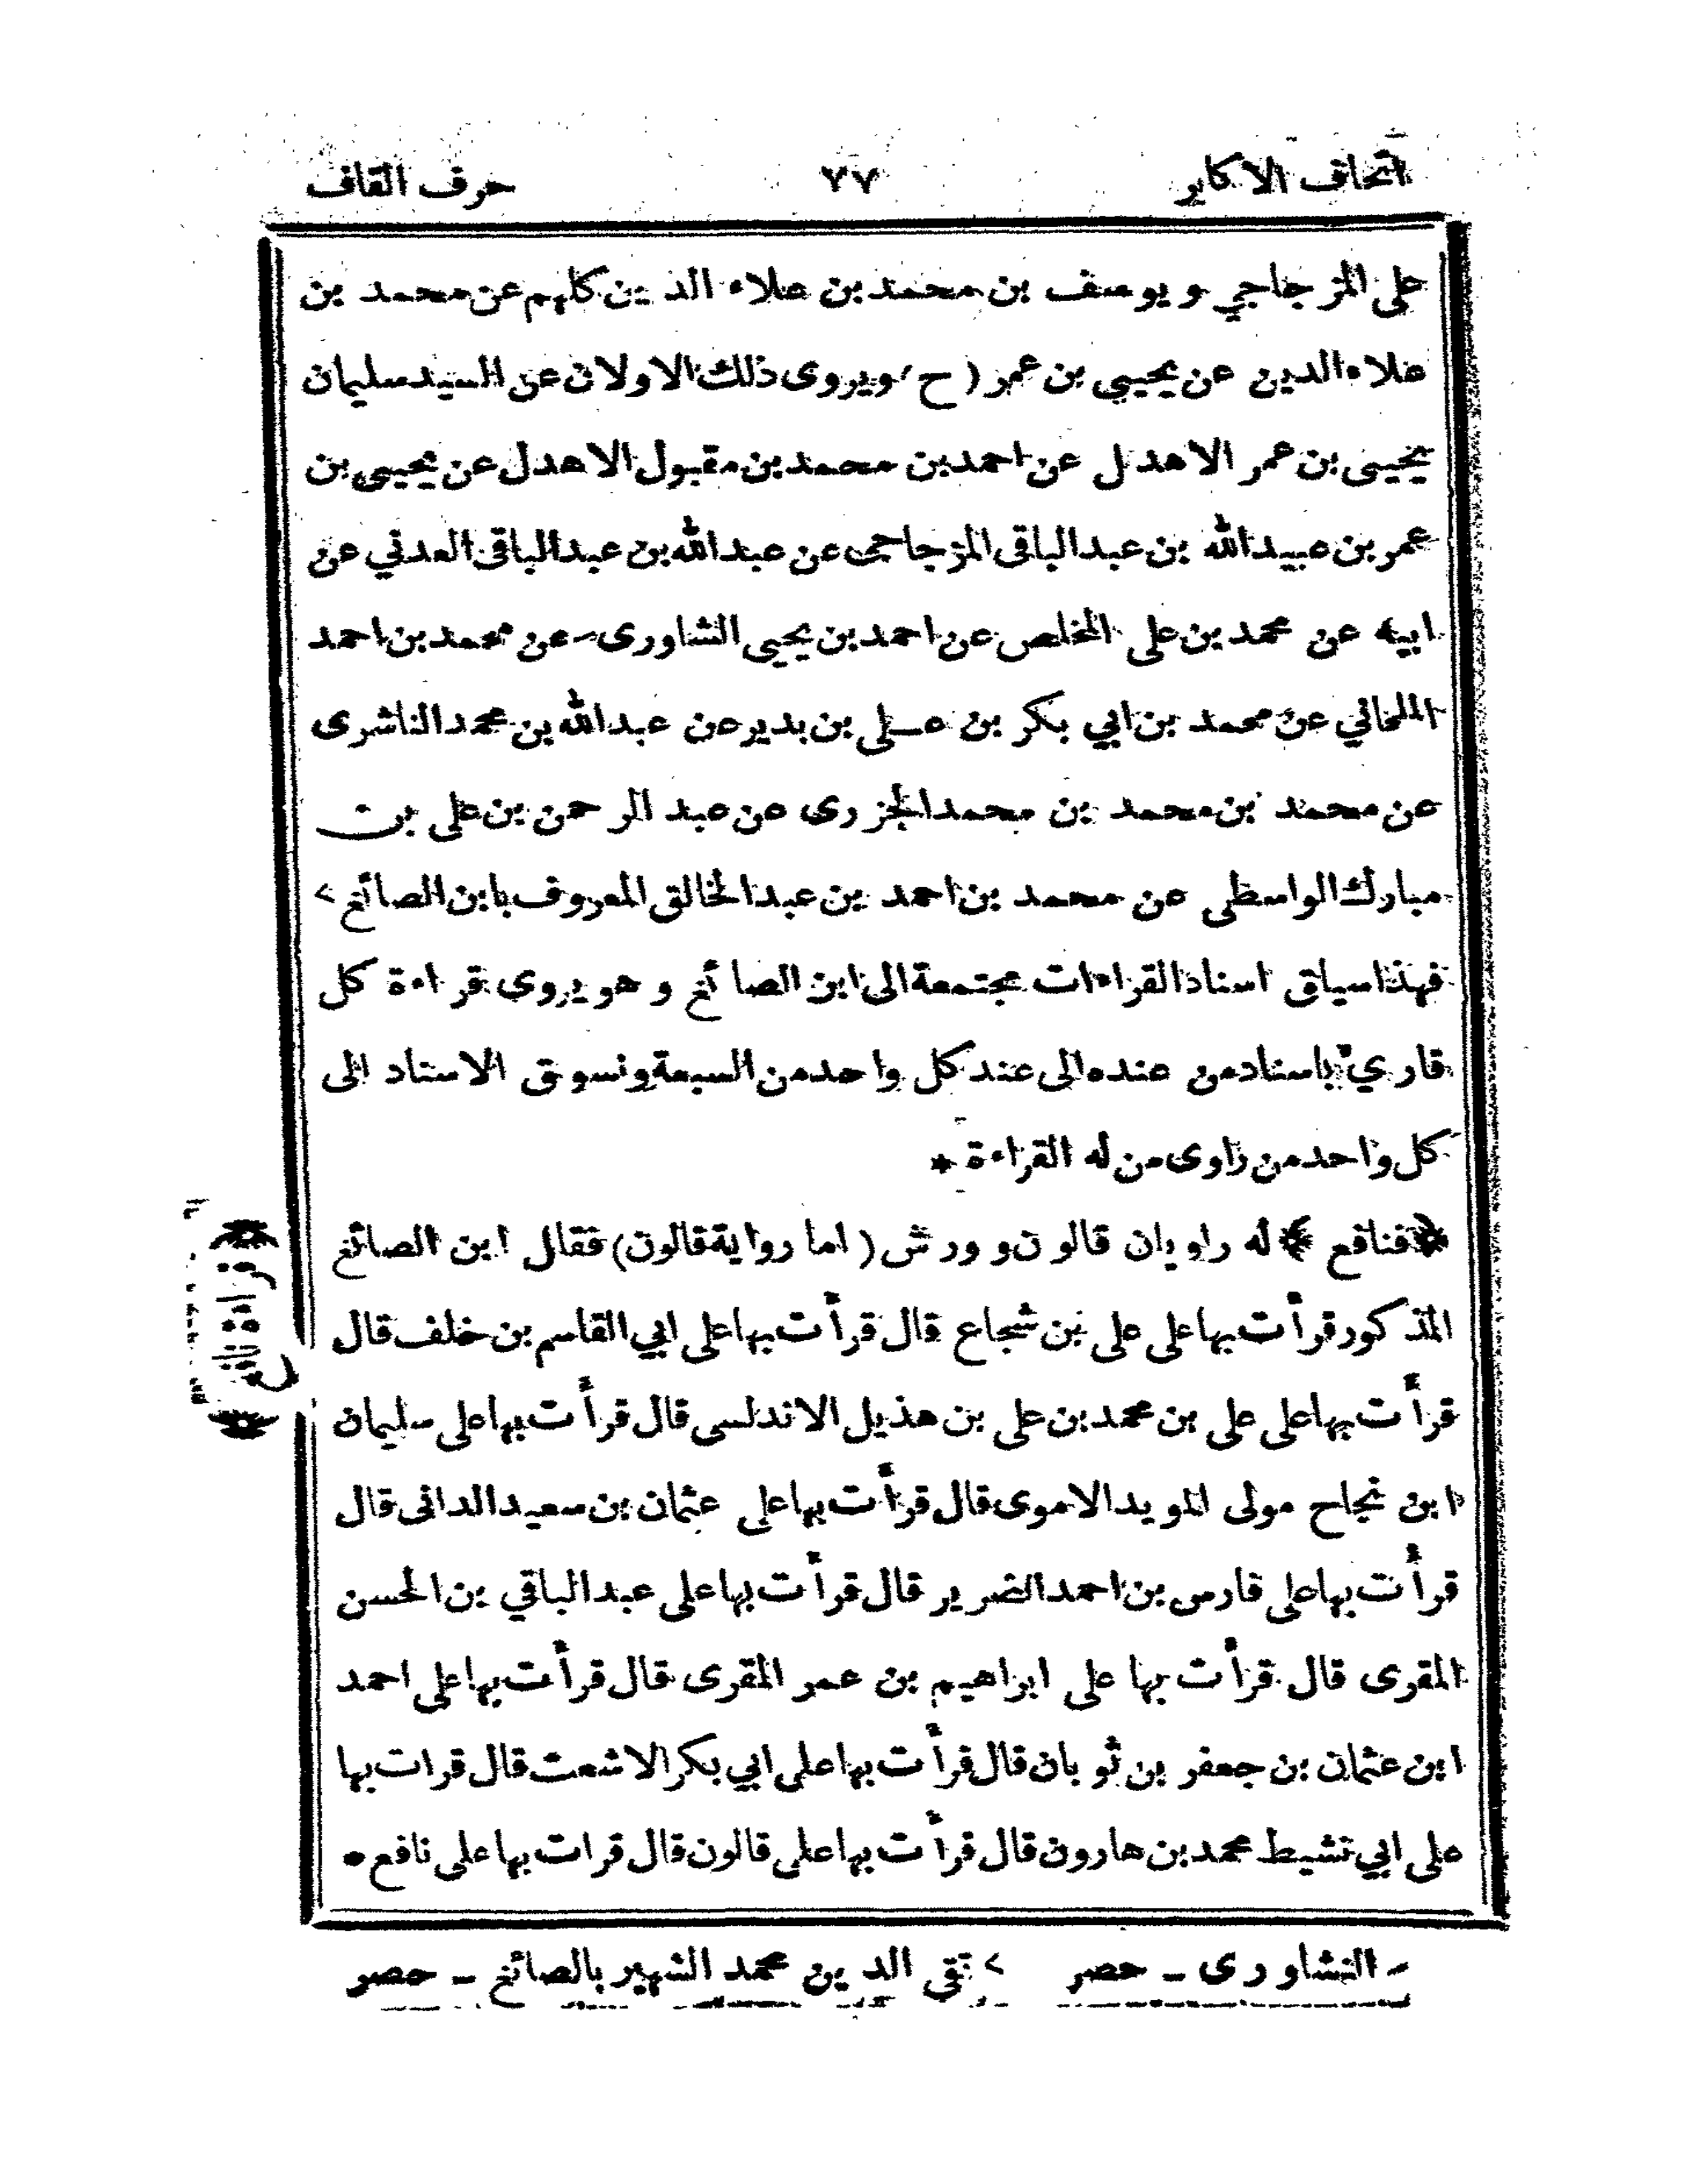 اتحاف الاكابر ٧٧ حرف القاف
على المزجاجي و يوسف بن محمد بن علاء الدين كلهم عن محمد بن
علاء الدين عن يحيى بن عمر (ح) ويروى ذلك الاولان عن السيد سليمان
يحيى بن عمر الاهدل عن احمد بن محمد بن مقبول الاهدل عن يحيى بن
عمر بن عبيد الله بن عبد الباقى المزجاجى عن عبد الله بن عبد الباقى العدني عن
ابيه عن محمد بن على المخلص عن احمد بن يحيى الشاورى ـ عن محمد بن احمد
الملحاني عن محمد بن ابي بكر بن على بن بدير عن عبد الله بن محمد الناشرى
عن محمد بن محمد بن محمد الجزرى عن عبد الرحمن بن على بن
مبارك الواسطى عن محمد بن احمد بن عبد الخالق المعروف بابن الصائغ >
فهذا سياق اسناد القراءات مجتمعة الى ابن الصائغ و هو يروى قراءة كل
قاري باسناد من عنده الى عند كل واحد من السبعة ونسوق الاسناد الى
كل واحد من راوى من له القراءة *
﴿فنافع﴾ له راويان قالون و ورش (اما رواية قالون) فقال ابن الصائغ
المذكور قرأت بها على على بن شجاع قال قرأت بها على ابي القاسم بن خلف قال
قرأت بها على على بن محمد بن على بن هذيل الاندلسى قال قرأت بها على سليمان
ابن نجاح مولى المويد الاموى قال قرأت بها على عثمان بن سعيد الدانى قال
قرأت بها على فارس بن احمد الضرير قال قرأت بها على عبد الباقي بن الحسن
المقرى قال قرأت بها على ابراهيم بن عمر المقرى قال قرأت بها على احمد
ابن عثمان بن جعفر بن ثوبان قال قرأت بها على ابي بكر الاشعث قال قرات بها
على ابي نشيط محمد بن هارون قال قرأت بها على قالون قال قرات بها على نافع •
ـ النشاورى ـ حصر > تقي الدين محمد الشهير بالصائغ ـ حصر